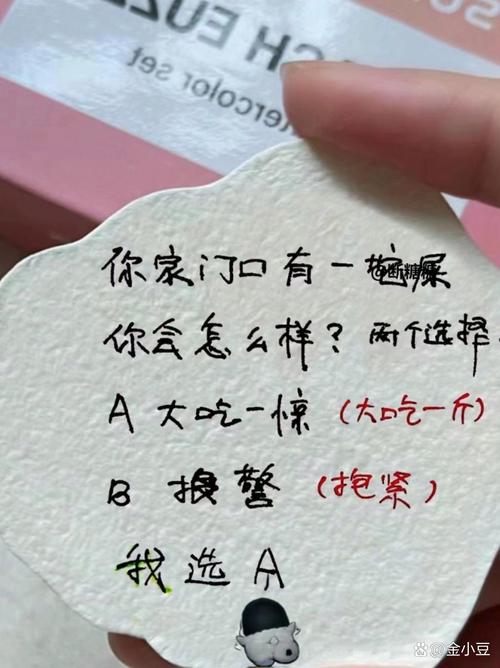 tercolor set
你家门口有一坨屎
你会怎么样？两个选择
A 大吃一惊（大吃一斤）
B 报警（抱紧）
我选A
金小豆